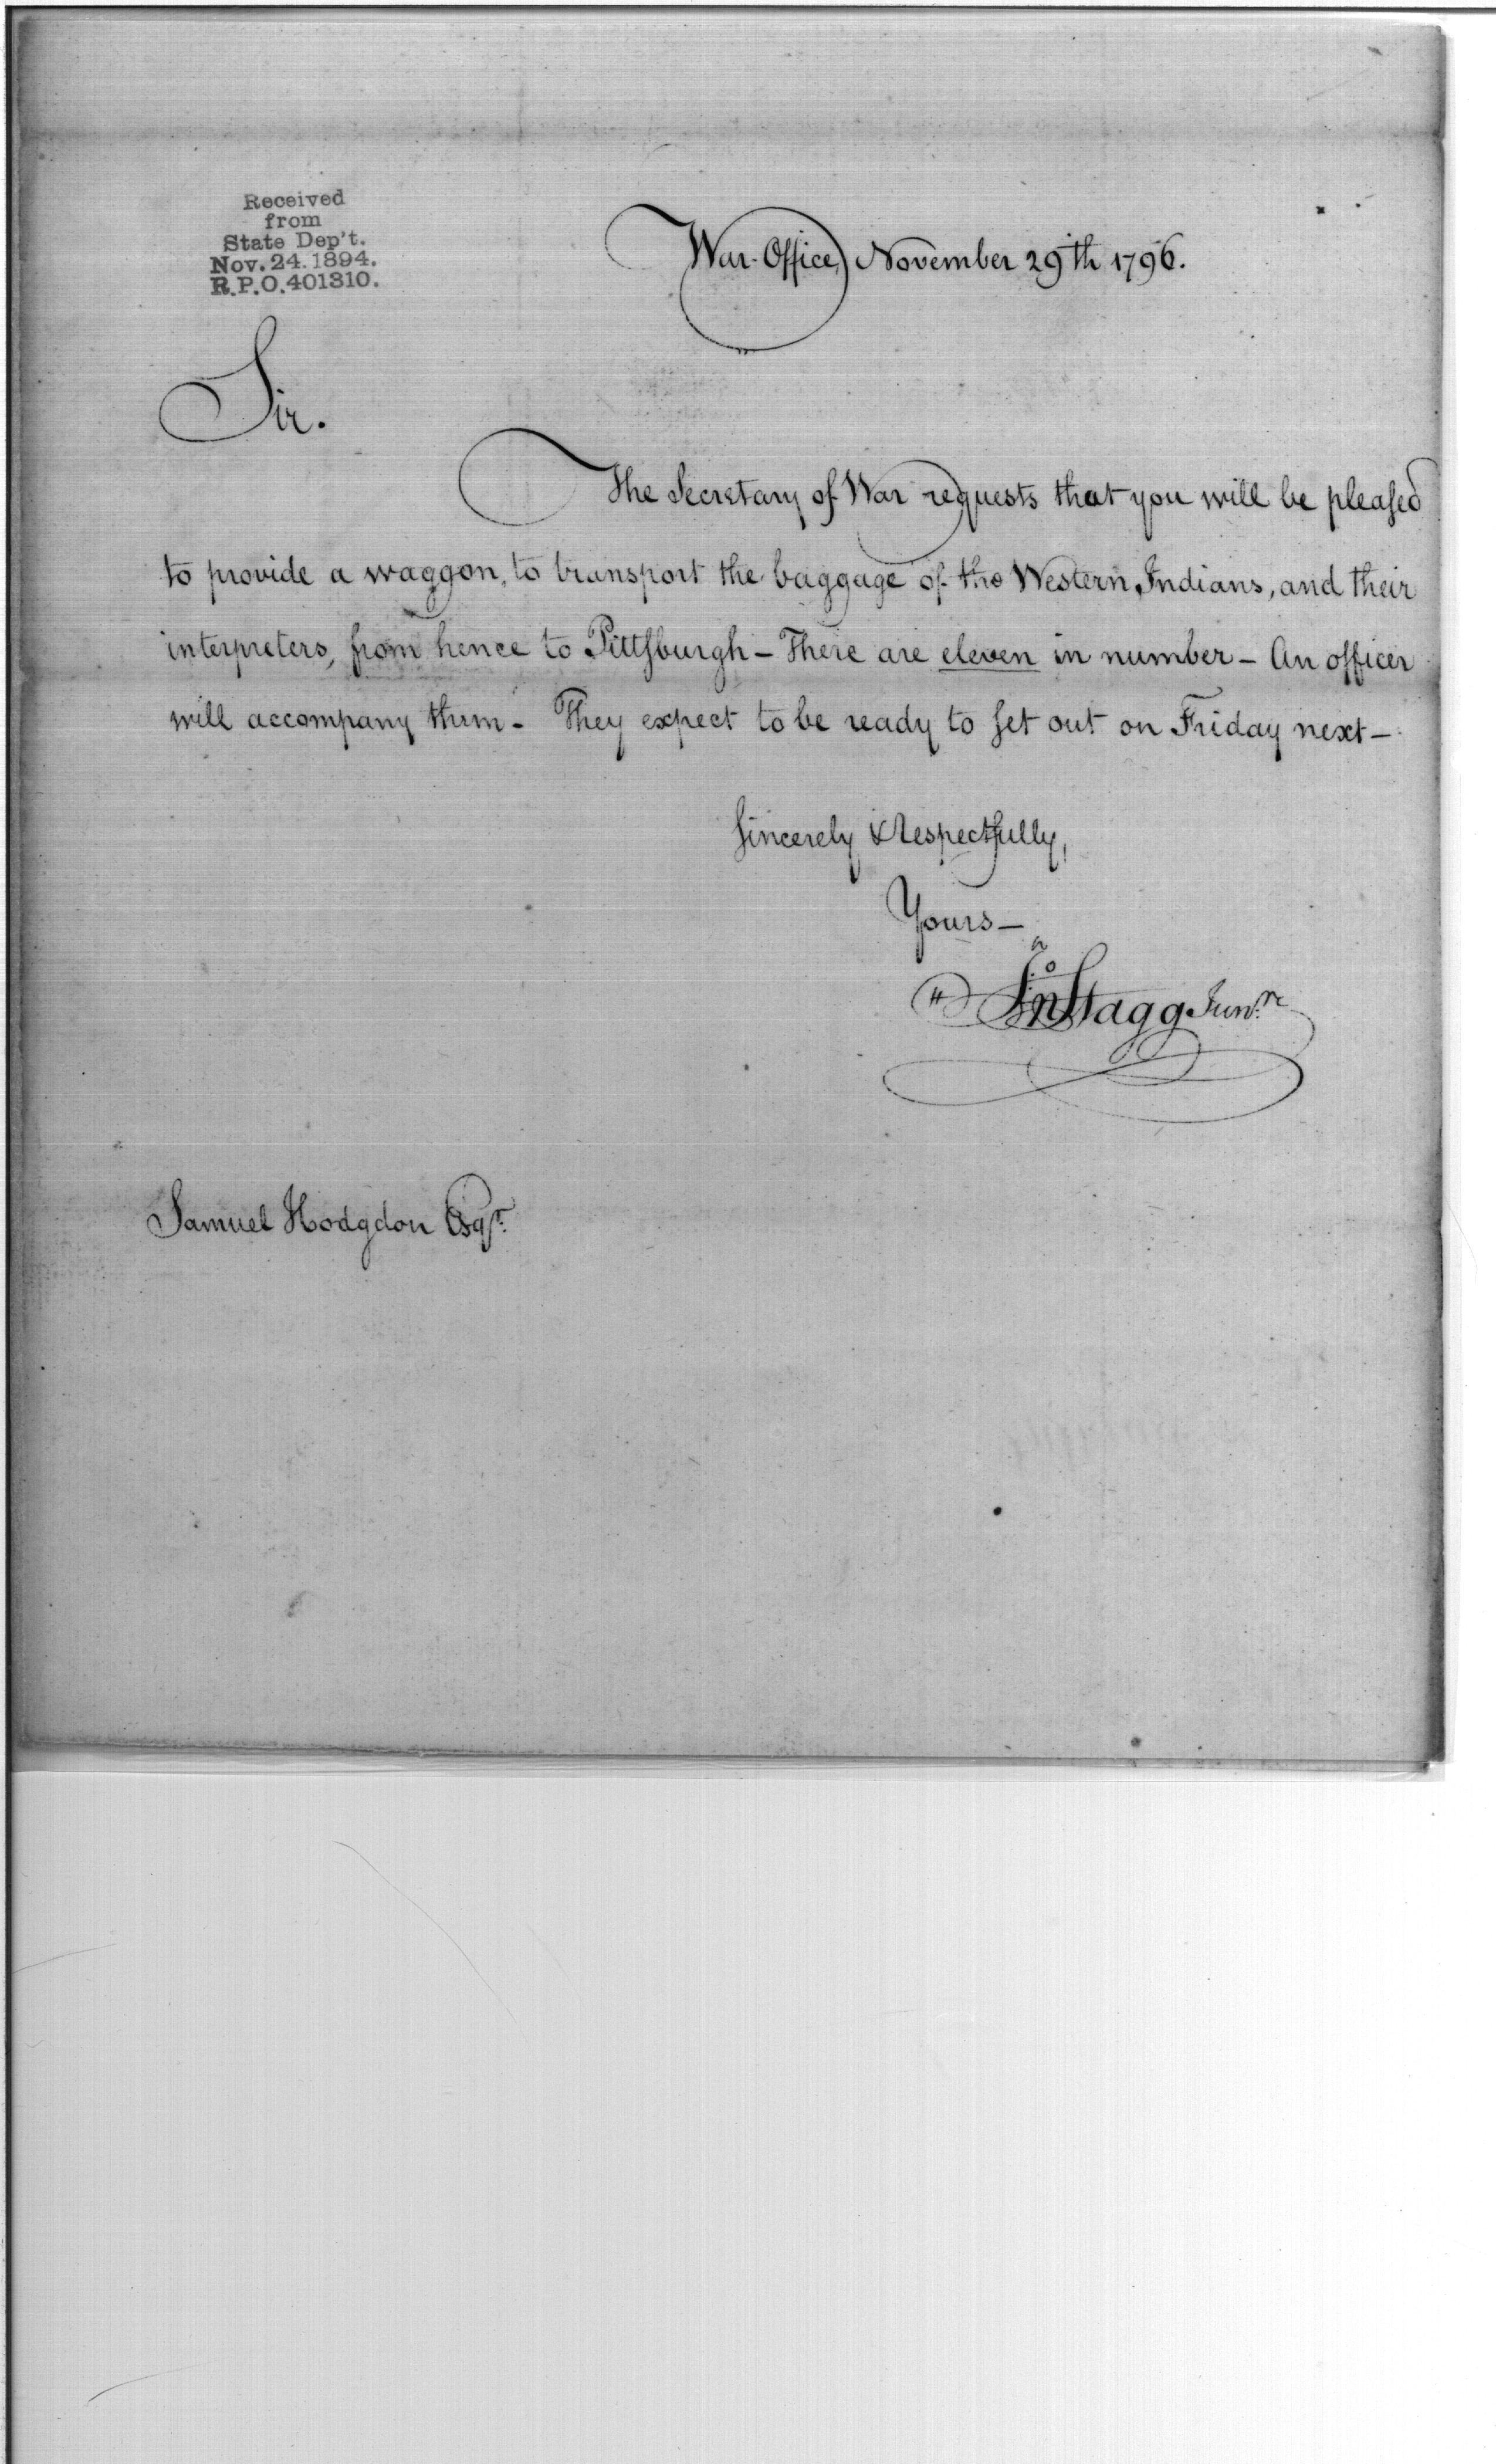 Received
from
State Dep't.
Nov. 24. 1894.
R.P.O. 401310.
War Office, November 29th 1796.
Sir.
The Secretary of War requests that you will be pleased
to provide a waggon, to transport the baggage of the Western Indians, and their
interpreters, from hence to Pittsburgh – There are eleven in number – An officer
will accompany them – They expect to be ready to set out on Friday next –
Sincerely & Respectfully,
Yours –
Jno Stagg Junr.
Samuel Hodgdon Esqr.